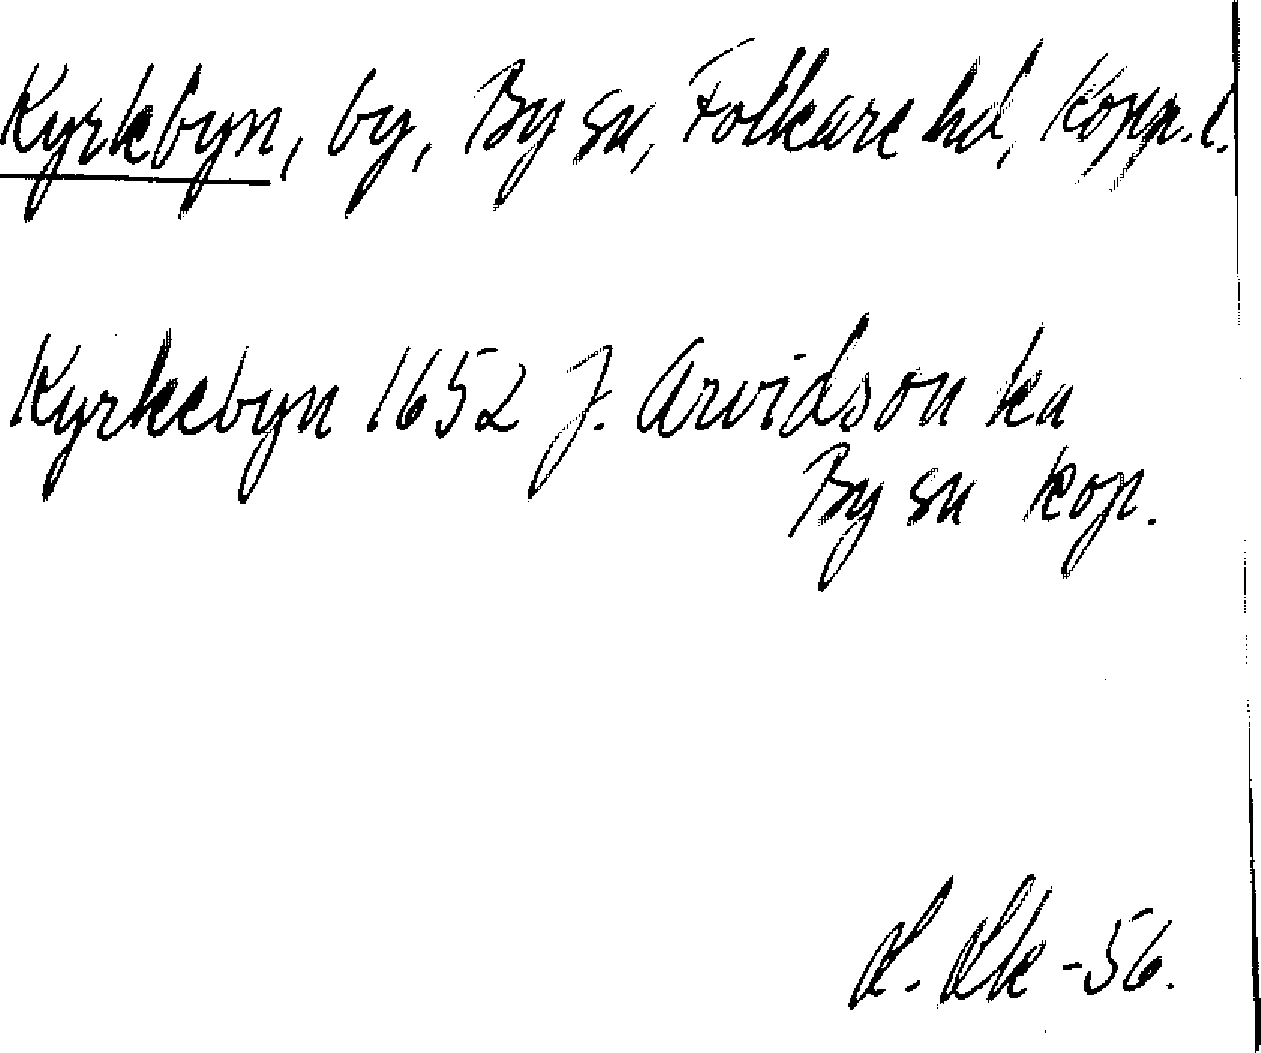 Kyrkbyn, by, By sn, Folkare hd, Kopp. l.
Kyrkebyn 1652 J. Arvidson ka
By sn kop.
-56.